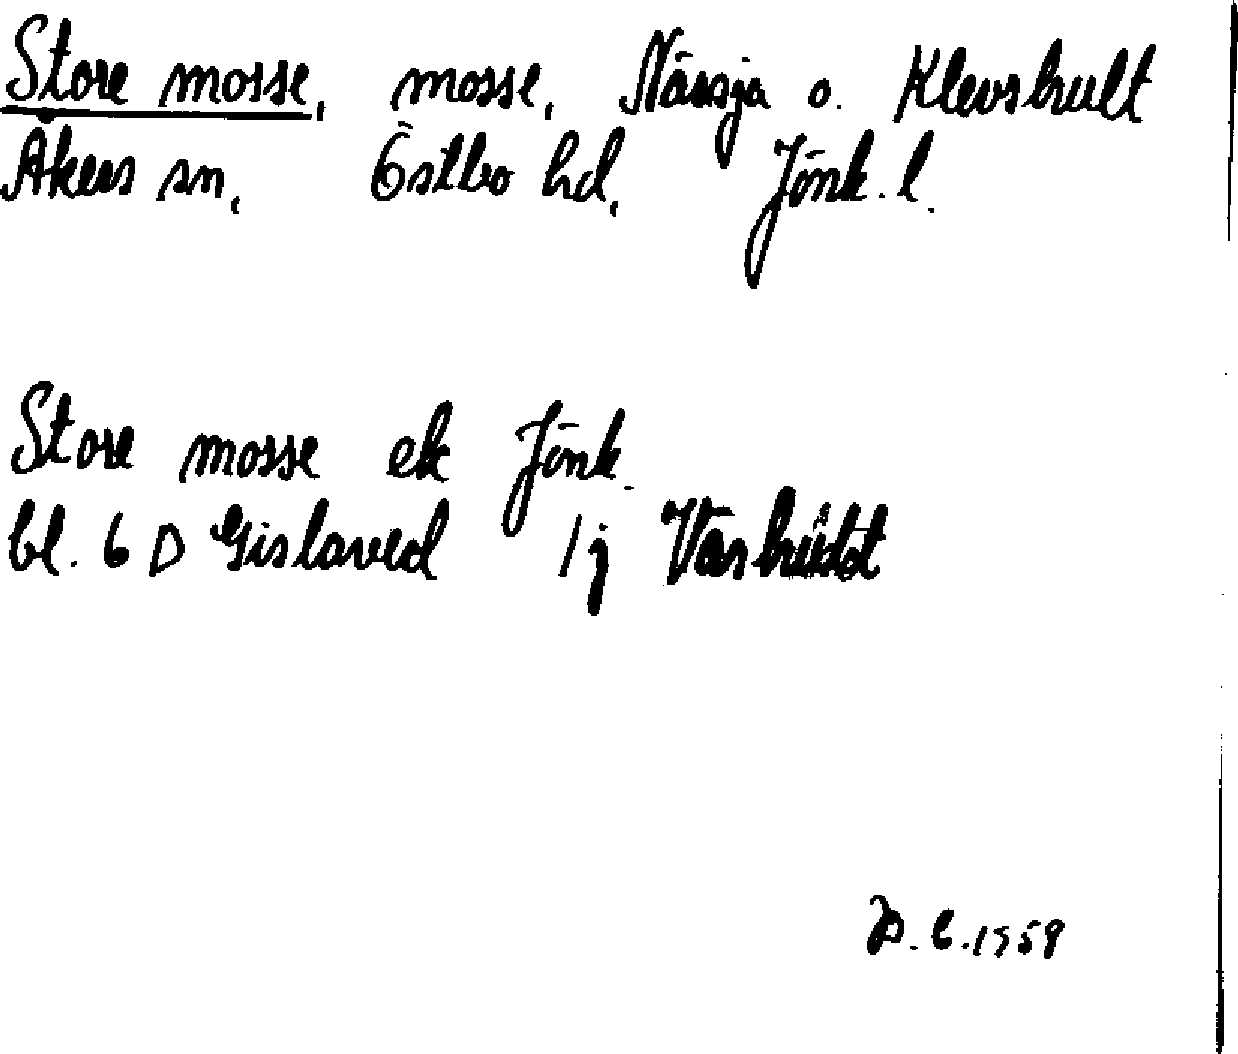 Store mosse, mosse, Nässja o. Klevshult
Åkers sn, Östbo hd, Jönk. l.
Store mosse ek Jönk.
bl. 6 D Gislaved 1j
1959